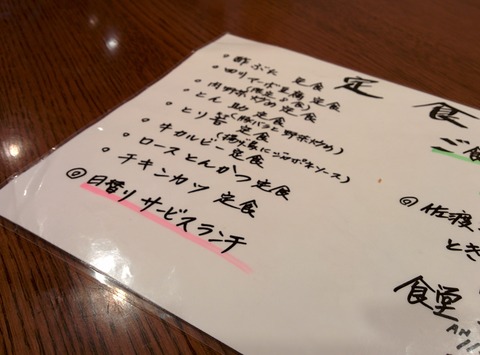 定食
○酢ぶた 定食
○四川マーボ豆腐 定食
(限定5食)
○肉野菜炒め 定食
○とん 助 定食
(豚バラと野菜炒め)
○とり 定食
(揚げ鳥にジャポネソース)
○牛カルビー 定食
○ロースとんかつ定食
○チキンカツ 定食
◎日替り サービスランチ
ご食
◎佐渡
とき
食堂
AM